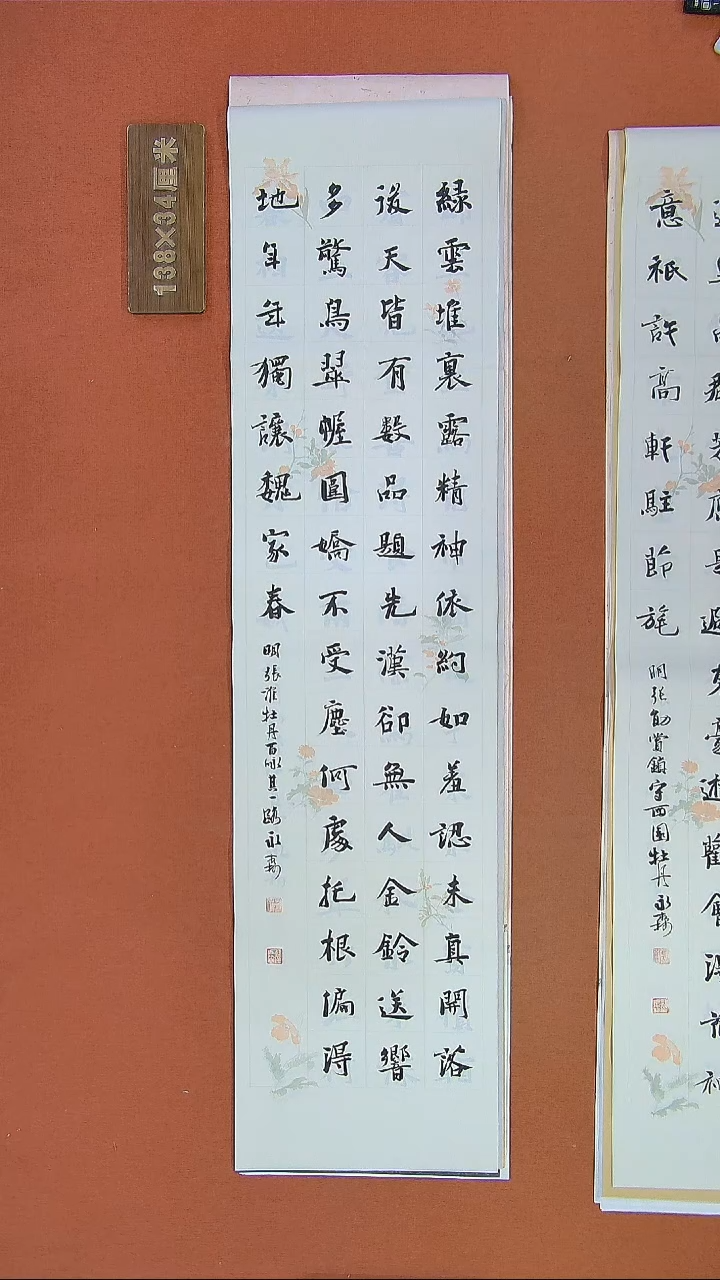 綠雲堆裏露精神依約如羞認未真開落
後天皆有数品題先漢卻無人金鈴送響
多驚鳥翠幄圍嬌不受塵何處托根偏得
地年年獨讓魏家春
明張淮牡丹百咏其一 永森
138×34厘米
意祇許高軒駐節旄
明張 賞鎮守西園牡丹永森